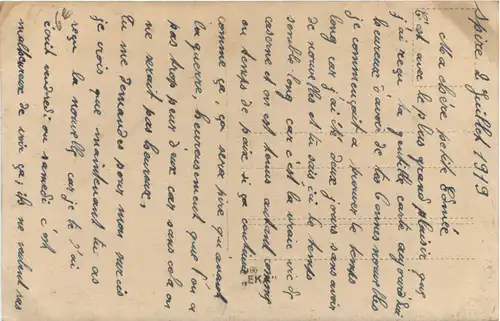 Spire 2 Juillet 1919
Ma chère petite Edmée
C'est avec le plus grand plaisir que
j'ai reçu ta gentille carte aujourd'hui
heureux d'avoir de tes bonnes nouvelles
je commençait a trouver le temps
long car j'ai été deux jours sans avoir
de nouvelles et tu sais ici le temps
semble long car c'est la vraie vie de
caserne et on est tenus autant comme
en temps de paix si ça continue
comme ça, ça sera pire qu'avant
la guerre, heureusement que l'on a
pas trop peur d'eux car sans cela on
ne serait pas heureux,
Tu me demandes pour mon
je crois que maintenant tu as
reçu la nouvelle car je te l'ai
écrit vendredi ou samedi c'est
malheureux de voir ça, ils ne valent pas
EK